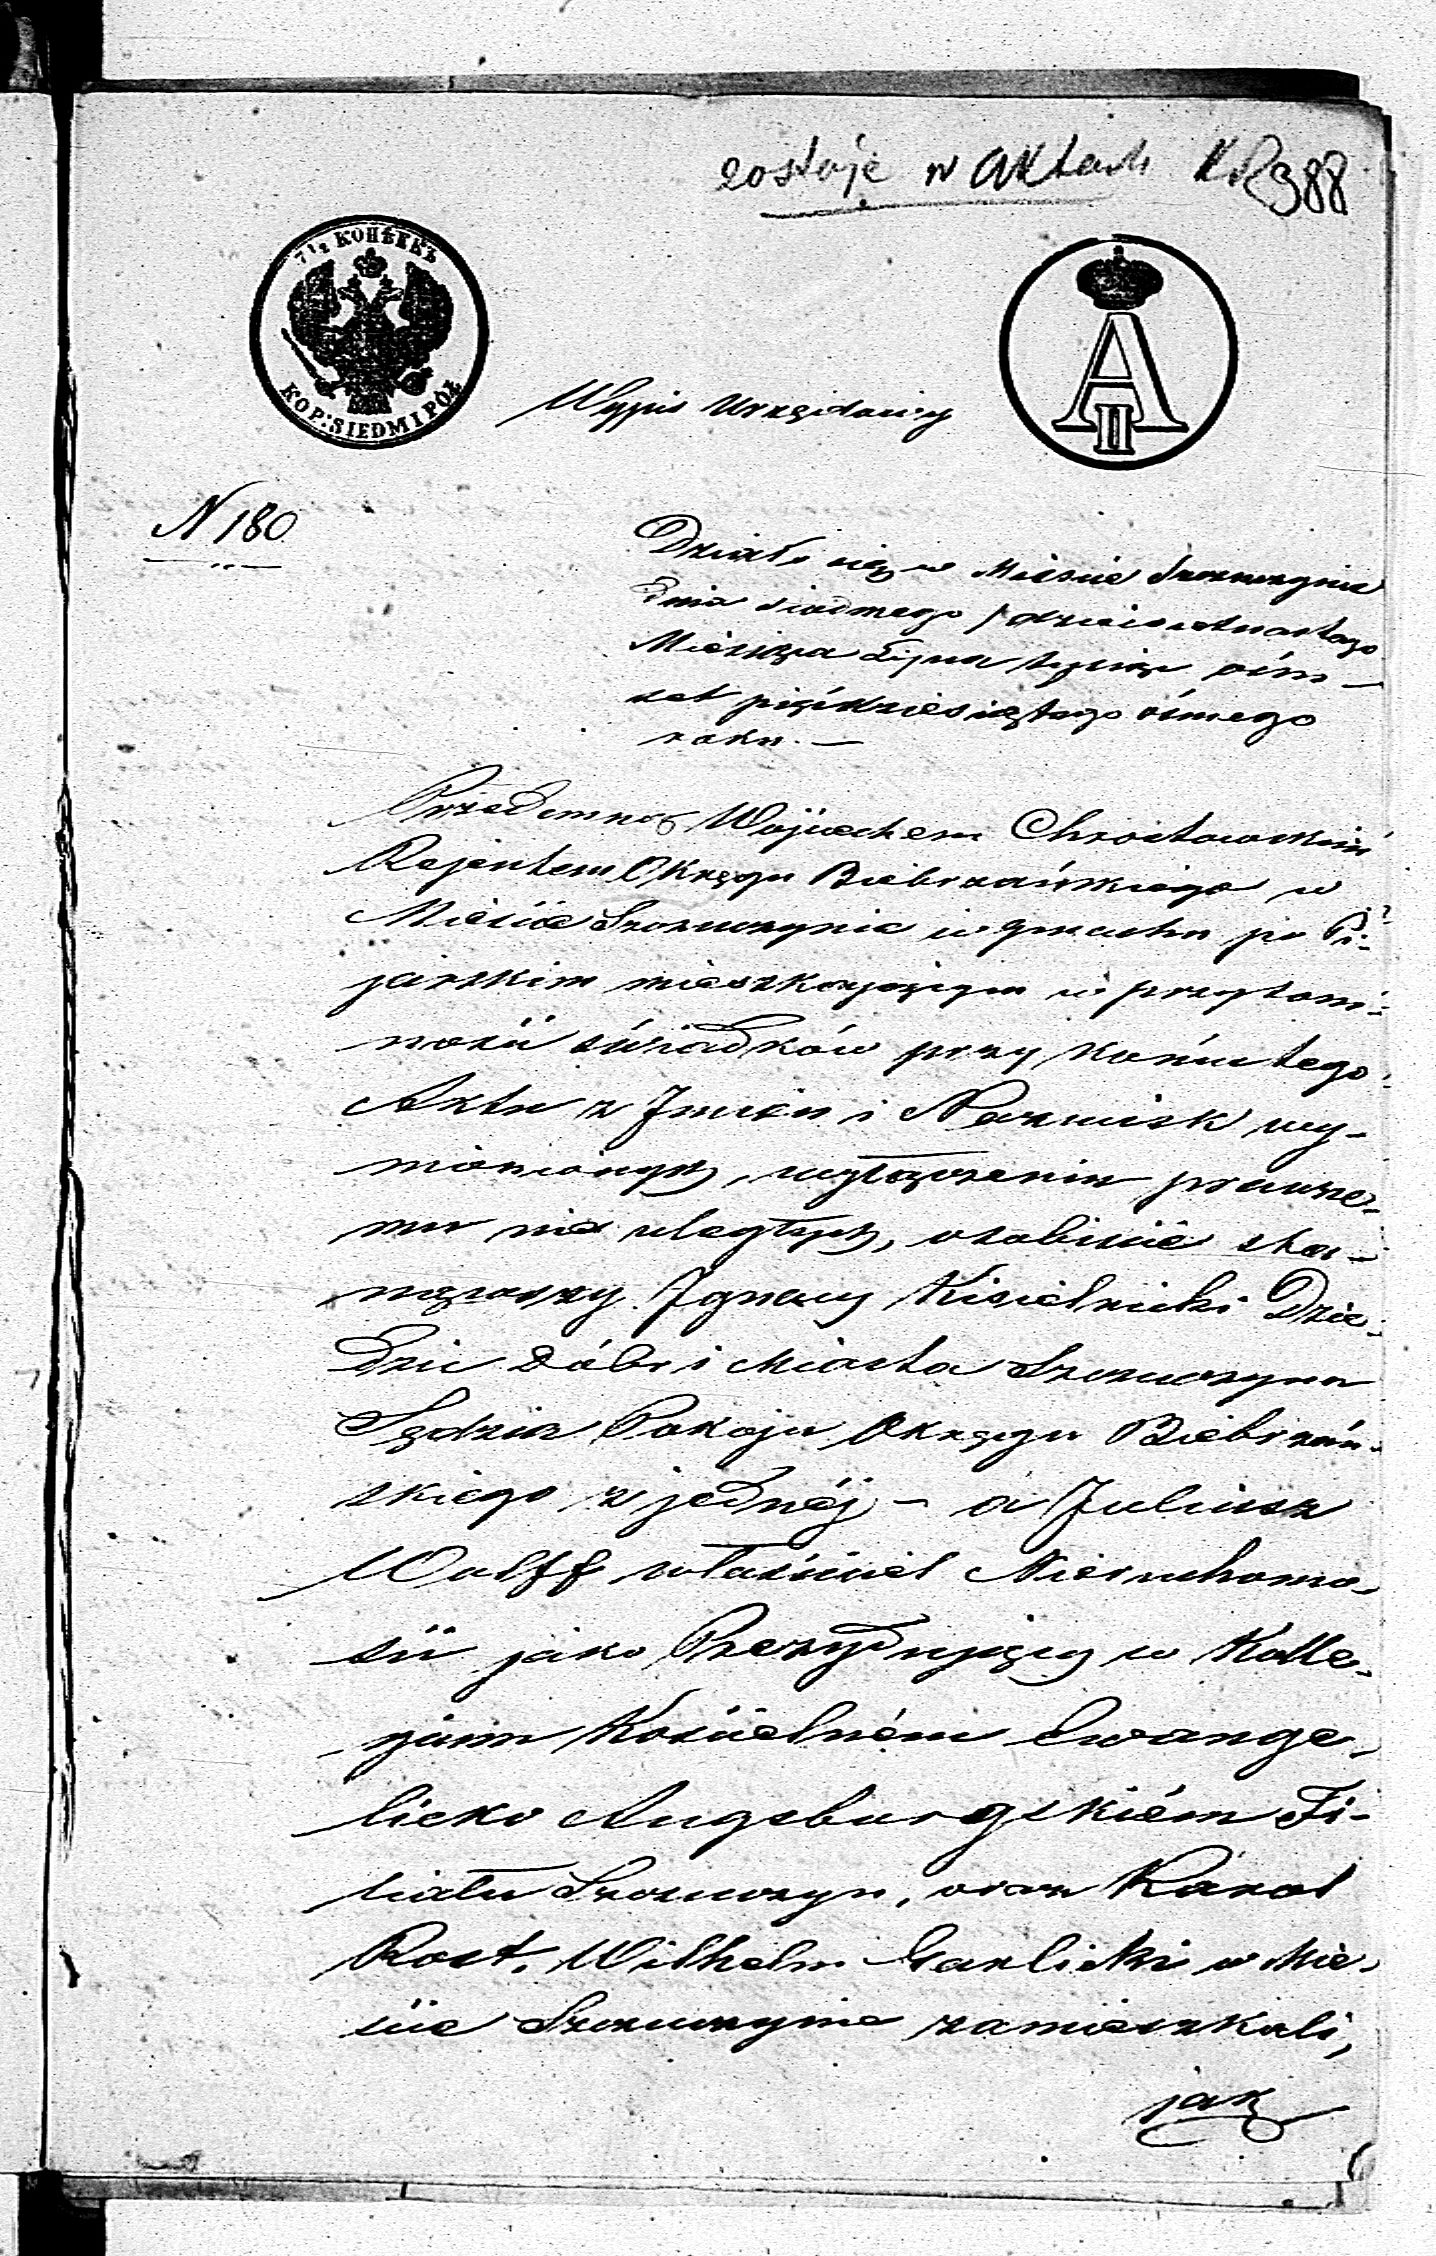 zostaje w aktach KR 388
7 1/2 КОПѢЕКЪ
KOP: SIEDM I PÓŁ
A II
Wypis Urzędowy
N 180
Działo się w Mieście Szczuczynie
Dnia siódmego / dziewiętnastego
Miesiąca Lipca tysiąc óśm-
set pięćdziesiątego ósmego
roku. —
Przedemną Wojciechem Chrostowskim
Rejentem Okręgu Biebrzańskiego w
Mieście Szczuczynie w gmachu po Pi-
jarskim mieszkającym w przytom-
ności świadków przy końcu tego
Aktu z Imion i Nazwisk wy-
mienionych, wyłączeniu prawne-
mu nie uległych, osobiście sta-
nąwszy Ignacy Kisielnicki Dzie-
dzic Dóbr i Miasta Szczuczyna
Sędzia Pokoju Okręgu Biebrzań-
skiego z jednéj – a Juliusz
Wolff właściciel Nieruchomo-
ści jako Prezydujący w Kolle-
gium Kościelném Ewange-
licko Augsburgskiém Fi-
liału Szczuczyn, oraz Karol
Rost, Wilhelm Garlicki w Mie-
ście Szczuczynie zamieszkali,
jak